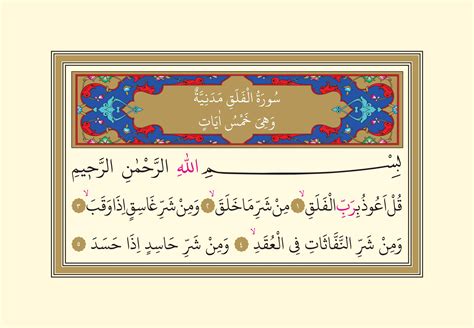 سُورَةُ الْفَلَقِ مَدَنِيَّةٌ
وَهِيَ خَمْسُ اٰيَاتٍ
بِسْمِ اللّٰهِ الرَّحْمٰنِ الرَّح۪يمِ
قُلْ اَعُوذُ بِرَبِّ الْفَلَقِۙ ١ مِنْ شَرِّ مَا خَلَقَۙ ٢ وَمِنْ شَرِّ غَاسِقٍ اِذَا وَقَبَۙ ٣
وَمِنْ شَرِّ النَّفَّاثَاتِ فِي الْعُقَدِۙ ٤ وَمِنْ شَرِّ حَاسِدٍ اِذَا حَسَدَ ٥